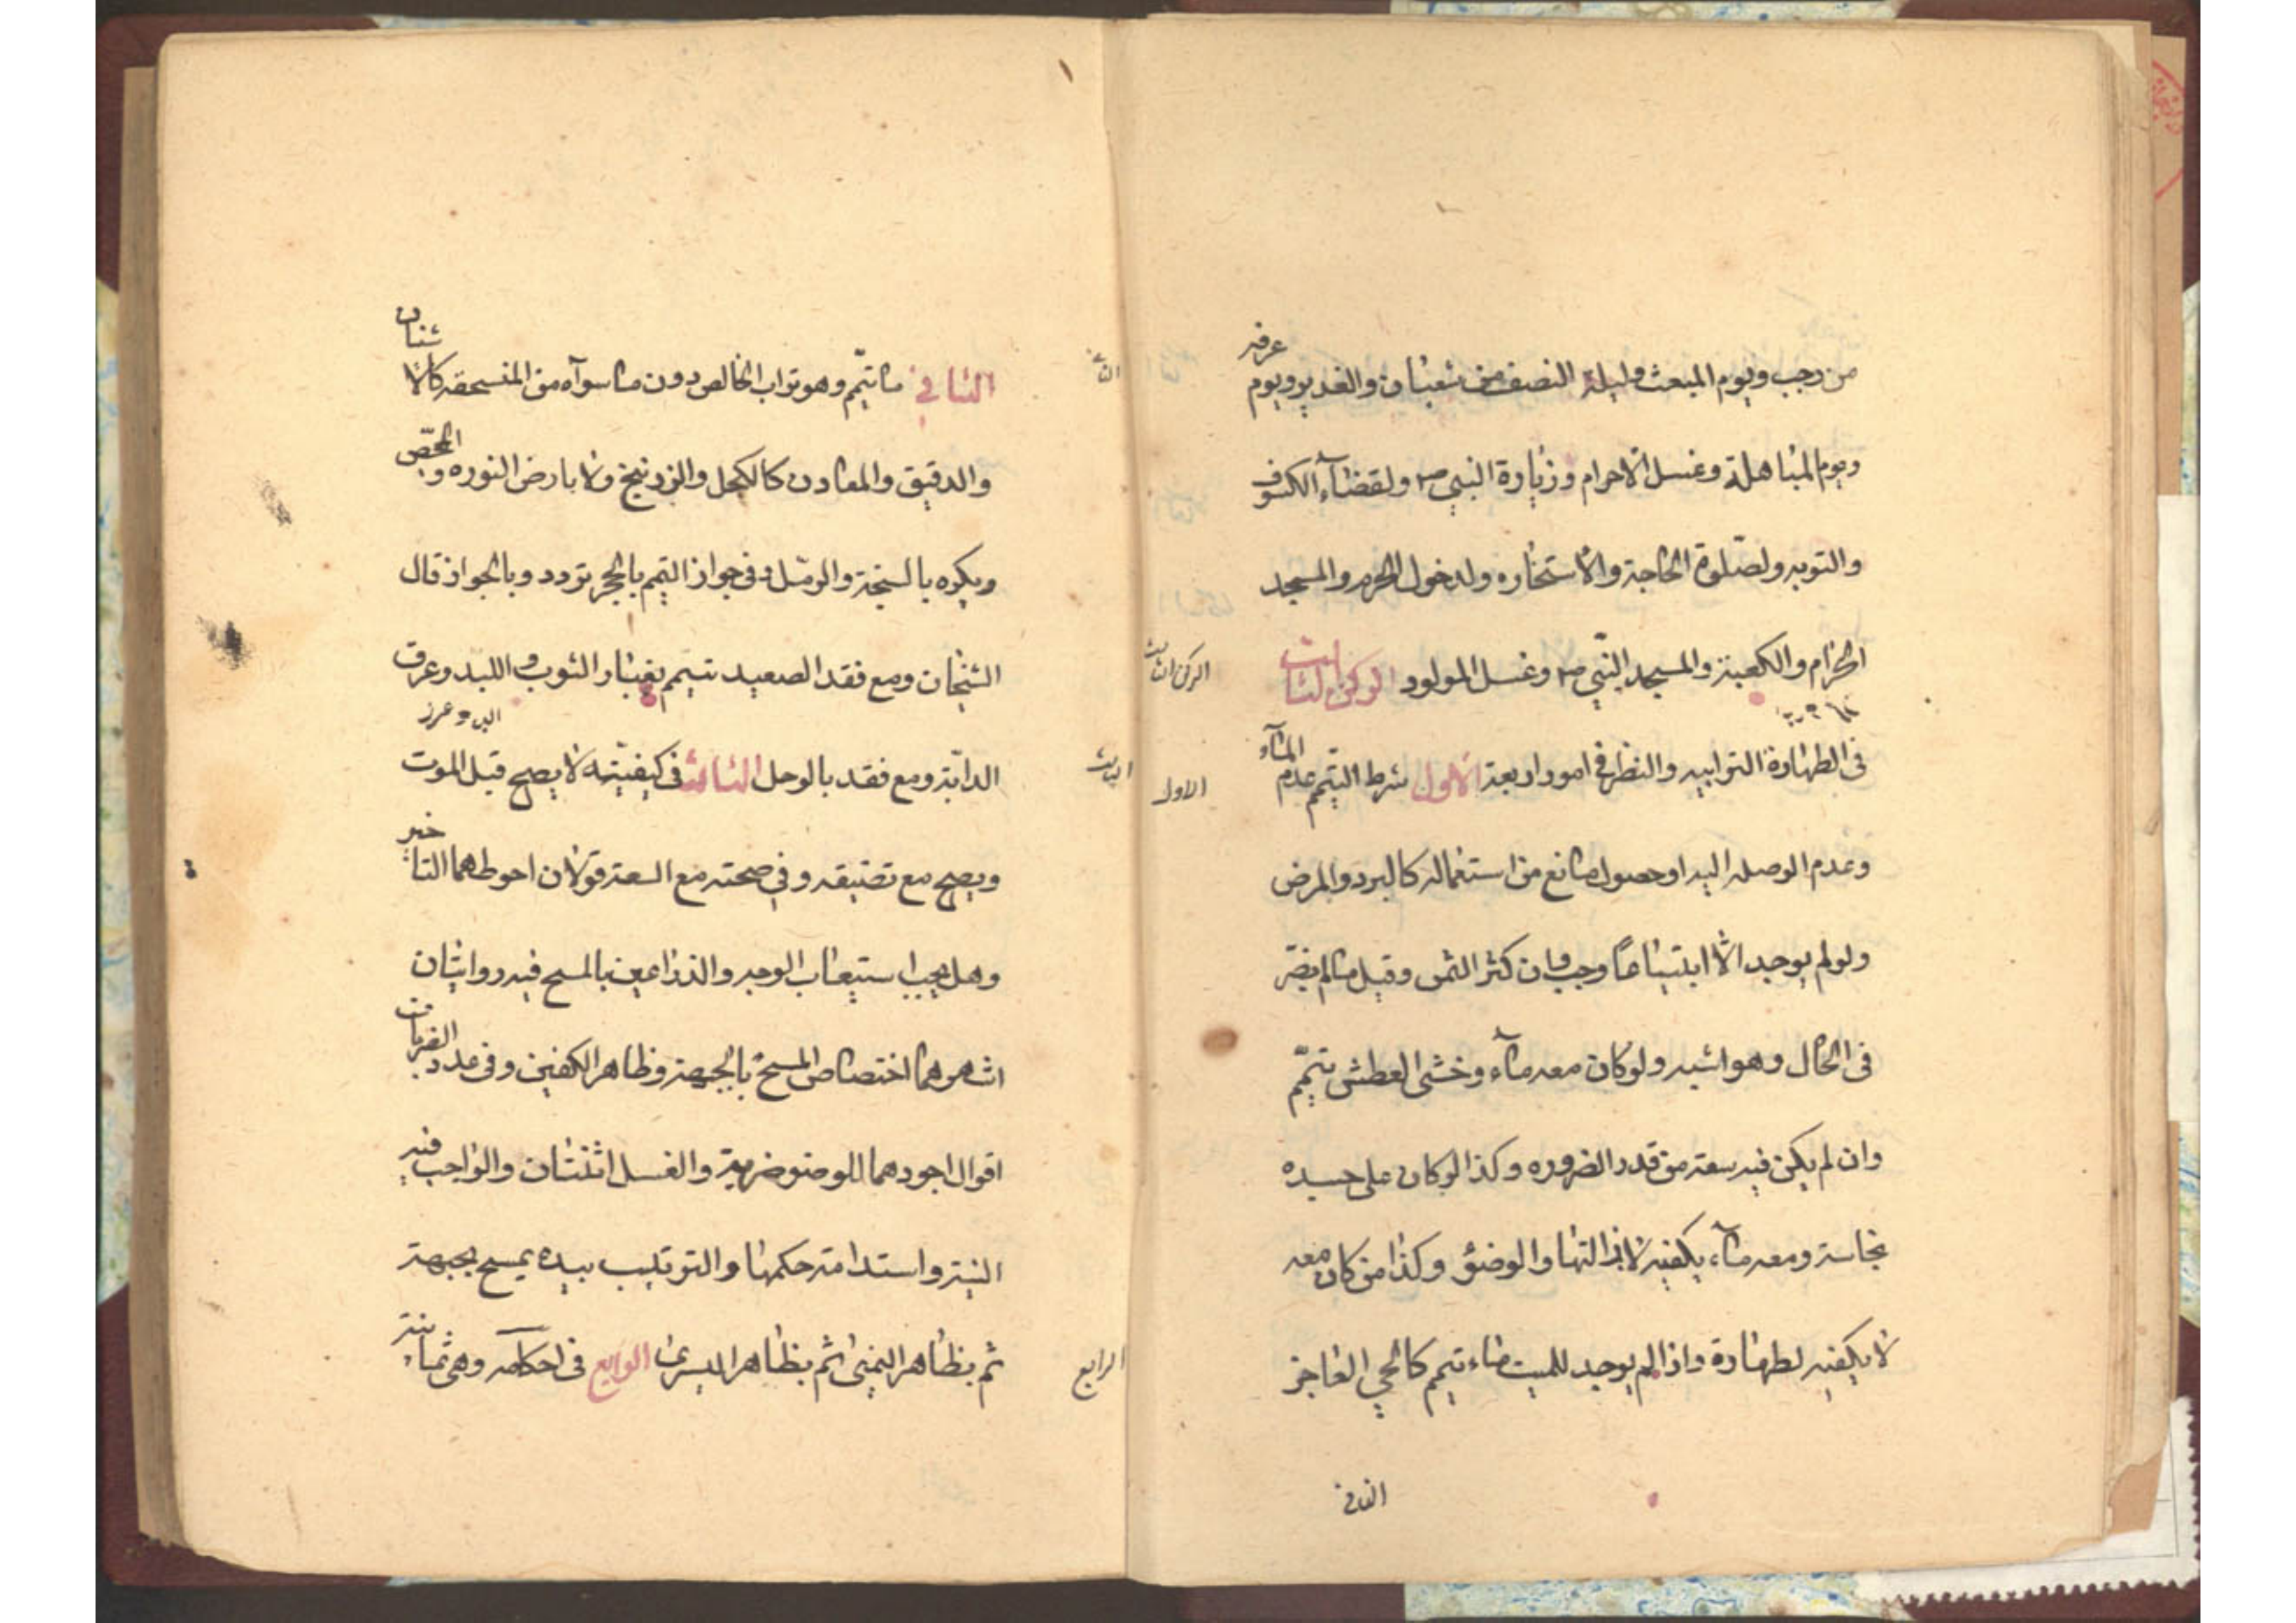 من رجب ويوم المبعث وليلة النصف من شعبان والغدير ويوم عرفه
ويوم المباهلة وغسل الاحرام وزيارة النبي ص ولقضآء الكسوف
والتوبه ولصلوة الحاجة والاستخاره ولدخول الحرم والمسجد
الحرام والكعبة والمسجد النبي ص وغسل المولود الركن الثالث
الركن الثالث
فى الطهارة الترابيه والنظر فى امور اربعة الاول شرط التيمم عدم المآء
الاول
وعدم الوصله اليه او حصول مانع من استعماله كالبرد والمرض
ولو لم يوجد الا ابتياعا وجب وان كثر الثمن وقيل مالم يضر
فى الحال وهو اشبه ولو كان معه مآء وخشى العطش تيمّم
وان لم يكن فيه سعة من قدر الضروره وكذا لو كان على جسده
نجاسة ومعه مآء يكفيه لازالتها والوضؤ وكذا من كان معه
لا يكفيه لطهارة واذا لم يوجد للميت ماء تيمم كالحي العاجز
الثانى
الثانى ما تيمّم وهو تراب الخالص دون ما سوآه من المنسحقه كالاشنان
والدقيق والمعادن كالكحل والزرنيخ ولا بارض النوره والجصّ
ويكره بالسبخة والرمل وفى جواز التيمم بالحجر تردد وبالجواز قال
الشيخان ومع فقد الصعيد تيمم بغبار الثوب و اللبد وعرف
الدابّة ومع فقد بالوحل الثالث فى كيفيّته لا يصح قبل الموت
الثالث
ويصح مع تضيقه وفي صحته مع السعة قولان احوطهما التاخير
وهل يجب استيعاب الوجه والذراعين بالمسح فيه روايتان
اشهرهما اختصاص المسح بالجبهة وظاهر الكفين وفى عدد الضربات
اقوال اجودهما للوضوء ضربة والغسل اثنتان والواجب فيه
النية واستدامة حكمها والترتيب بيده يمسح بجبهة
ثم بظاهر اليمنى ثم بظاهر اليسرى الرابع فى احكامه وهى ثمانية
الرابع